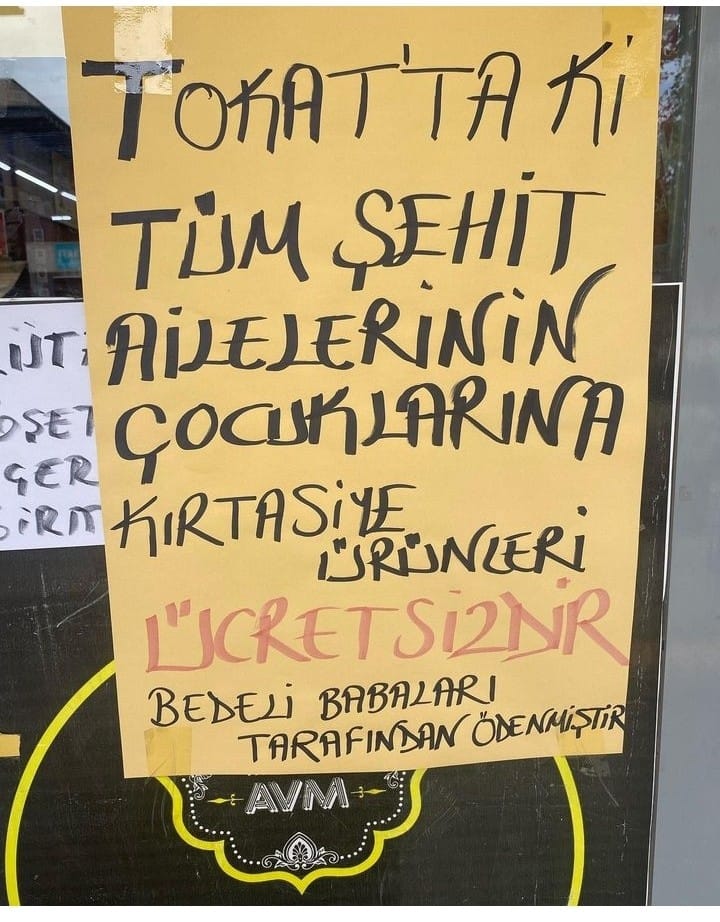 TOKAT'TA Kİ
TÜM ŞEHİT
AİLELERİNİN
ÇOCUKLARINA
KIRTASİYE
ÜRÜNLERİ
ÜCRETSİZDİR
BEDELİ BABALARI
TARAFINDAN ÖDENMİŞTİR
AVM